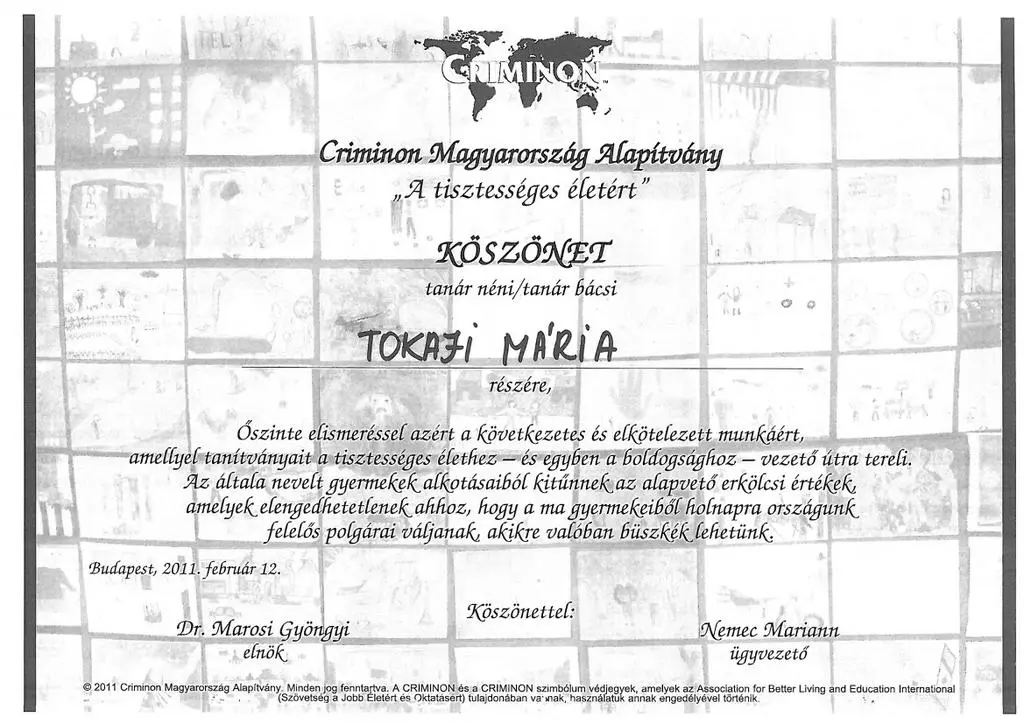 CRIMINON™
Criminon Magyarország Alapítvány
„A tisztességes életért”
KÖSZÖNET
tanár néni/tanár bácsi
TOKAJI MÁRIA
részére,
Őszinte elismeréssel azért a következetes és elkötelezett munkáért,
amellyel tanítványait a tisztességes élethez – és egyben a boldogsághoz – vezető útra tereli.
Az általa nevelt gyermekek alkotásaiból kitűnnek az alapvető erkölcsi értékek,
amelyek elengedhetetlenek ahhoz, hogy a ma gyermekeiből holnapra országunk
felelős polgárai váljanak, akikre valóban büszkék lehetünk.
Budapest, 2011. február 12.
Köszönettel:
Dr. Marosi Gyöngyi
elnök
Nemec Mariann
ügyvezető
© 2011 Criminon Magyarország Alapítvány. Minden jog fenntartva. A CRIMINON és a CRIMINON szimbólum védjegyek, amelyek az Association for Better Living and Education International
(Szövetség a Jobb Életért és Oktatásért) tulajdonában vannak, használatuk annak engedélyével történik.